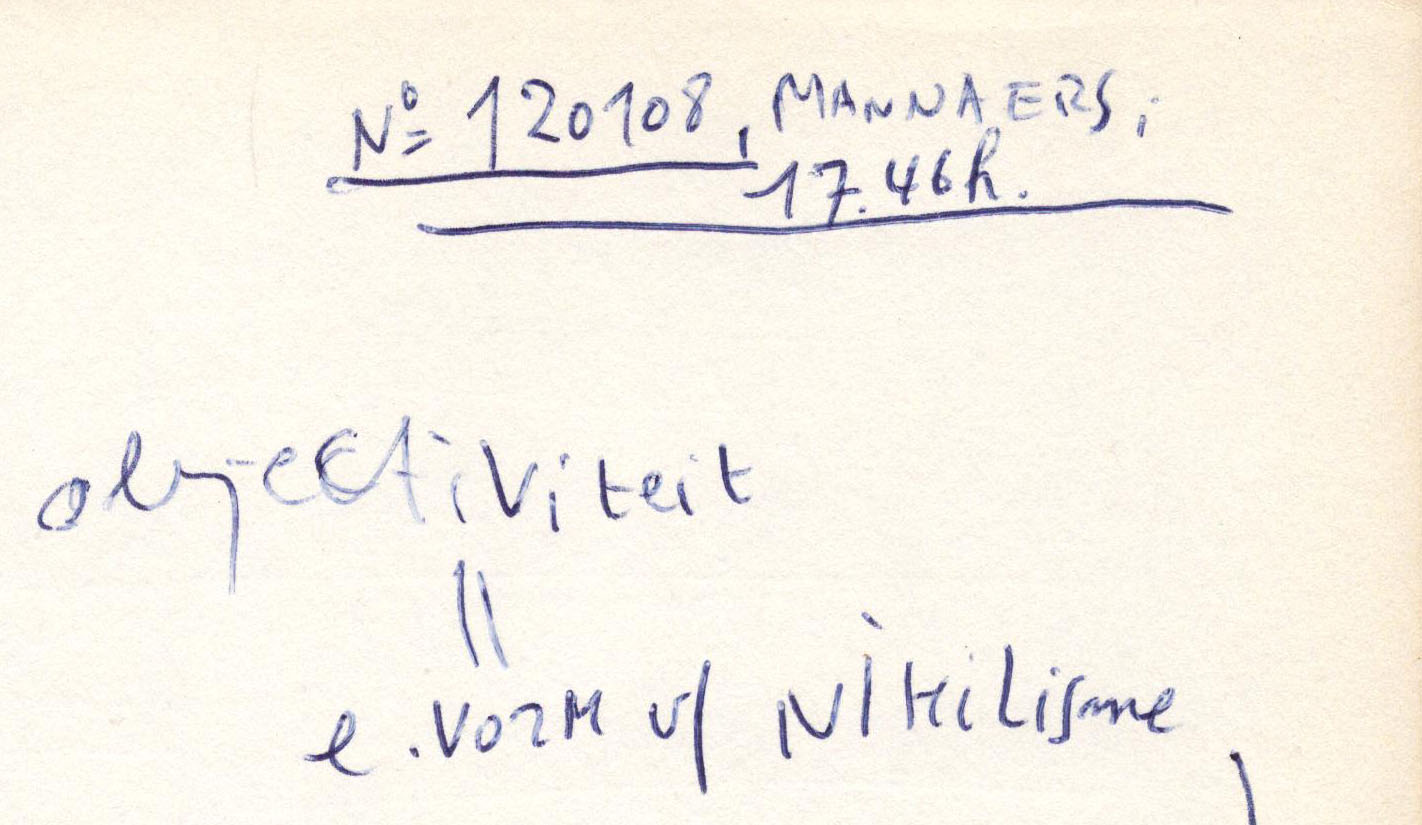 Nº 120108, MANNAERS,
17.46h.
objectiviteit
||
e. vorm v/ NiHiLisme